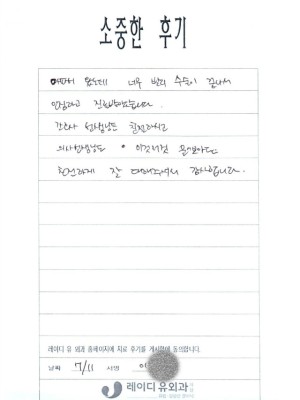 소중한 후기
아파서 왔는데 너무 빨리 수술이 끝나서
간호사 선생님도 친절하시고
의사선생님도 이것저것 물어봐도
친절하게 잘 대해주셔서 감사합니다.
레이디 유 외과 홈페이지에 치료 후기를 게시함에 동의합니다.
날짜 7/11 서명 이
레이디유외과